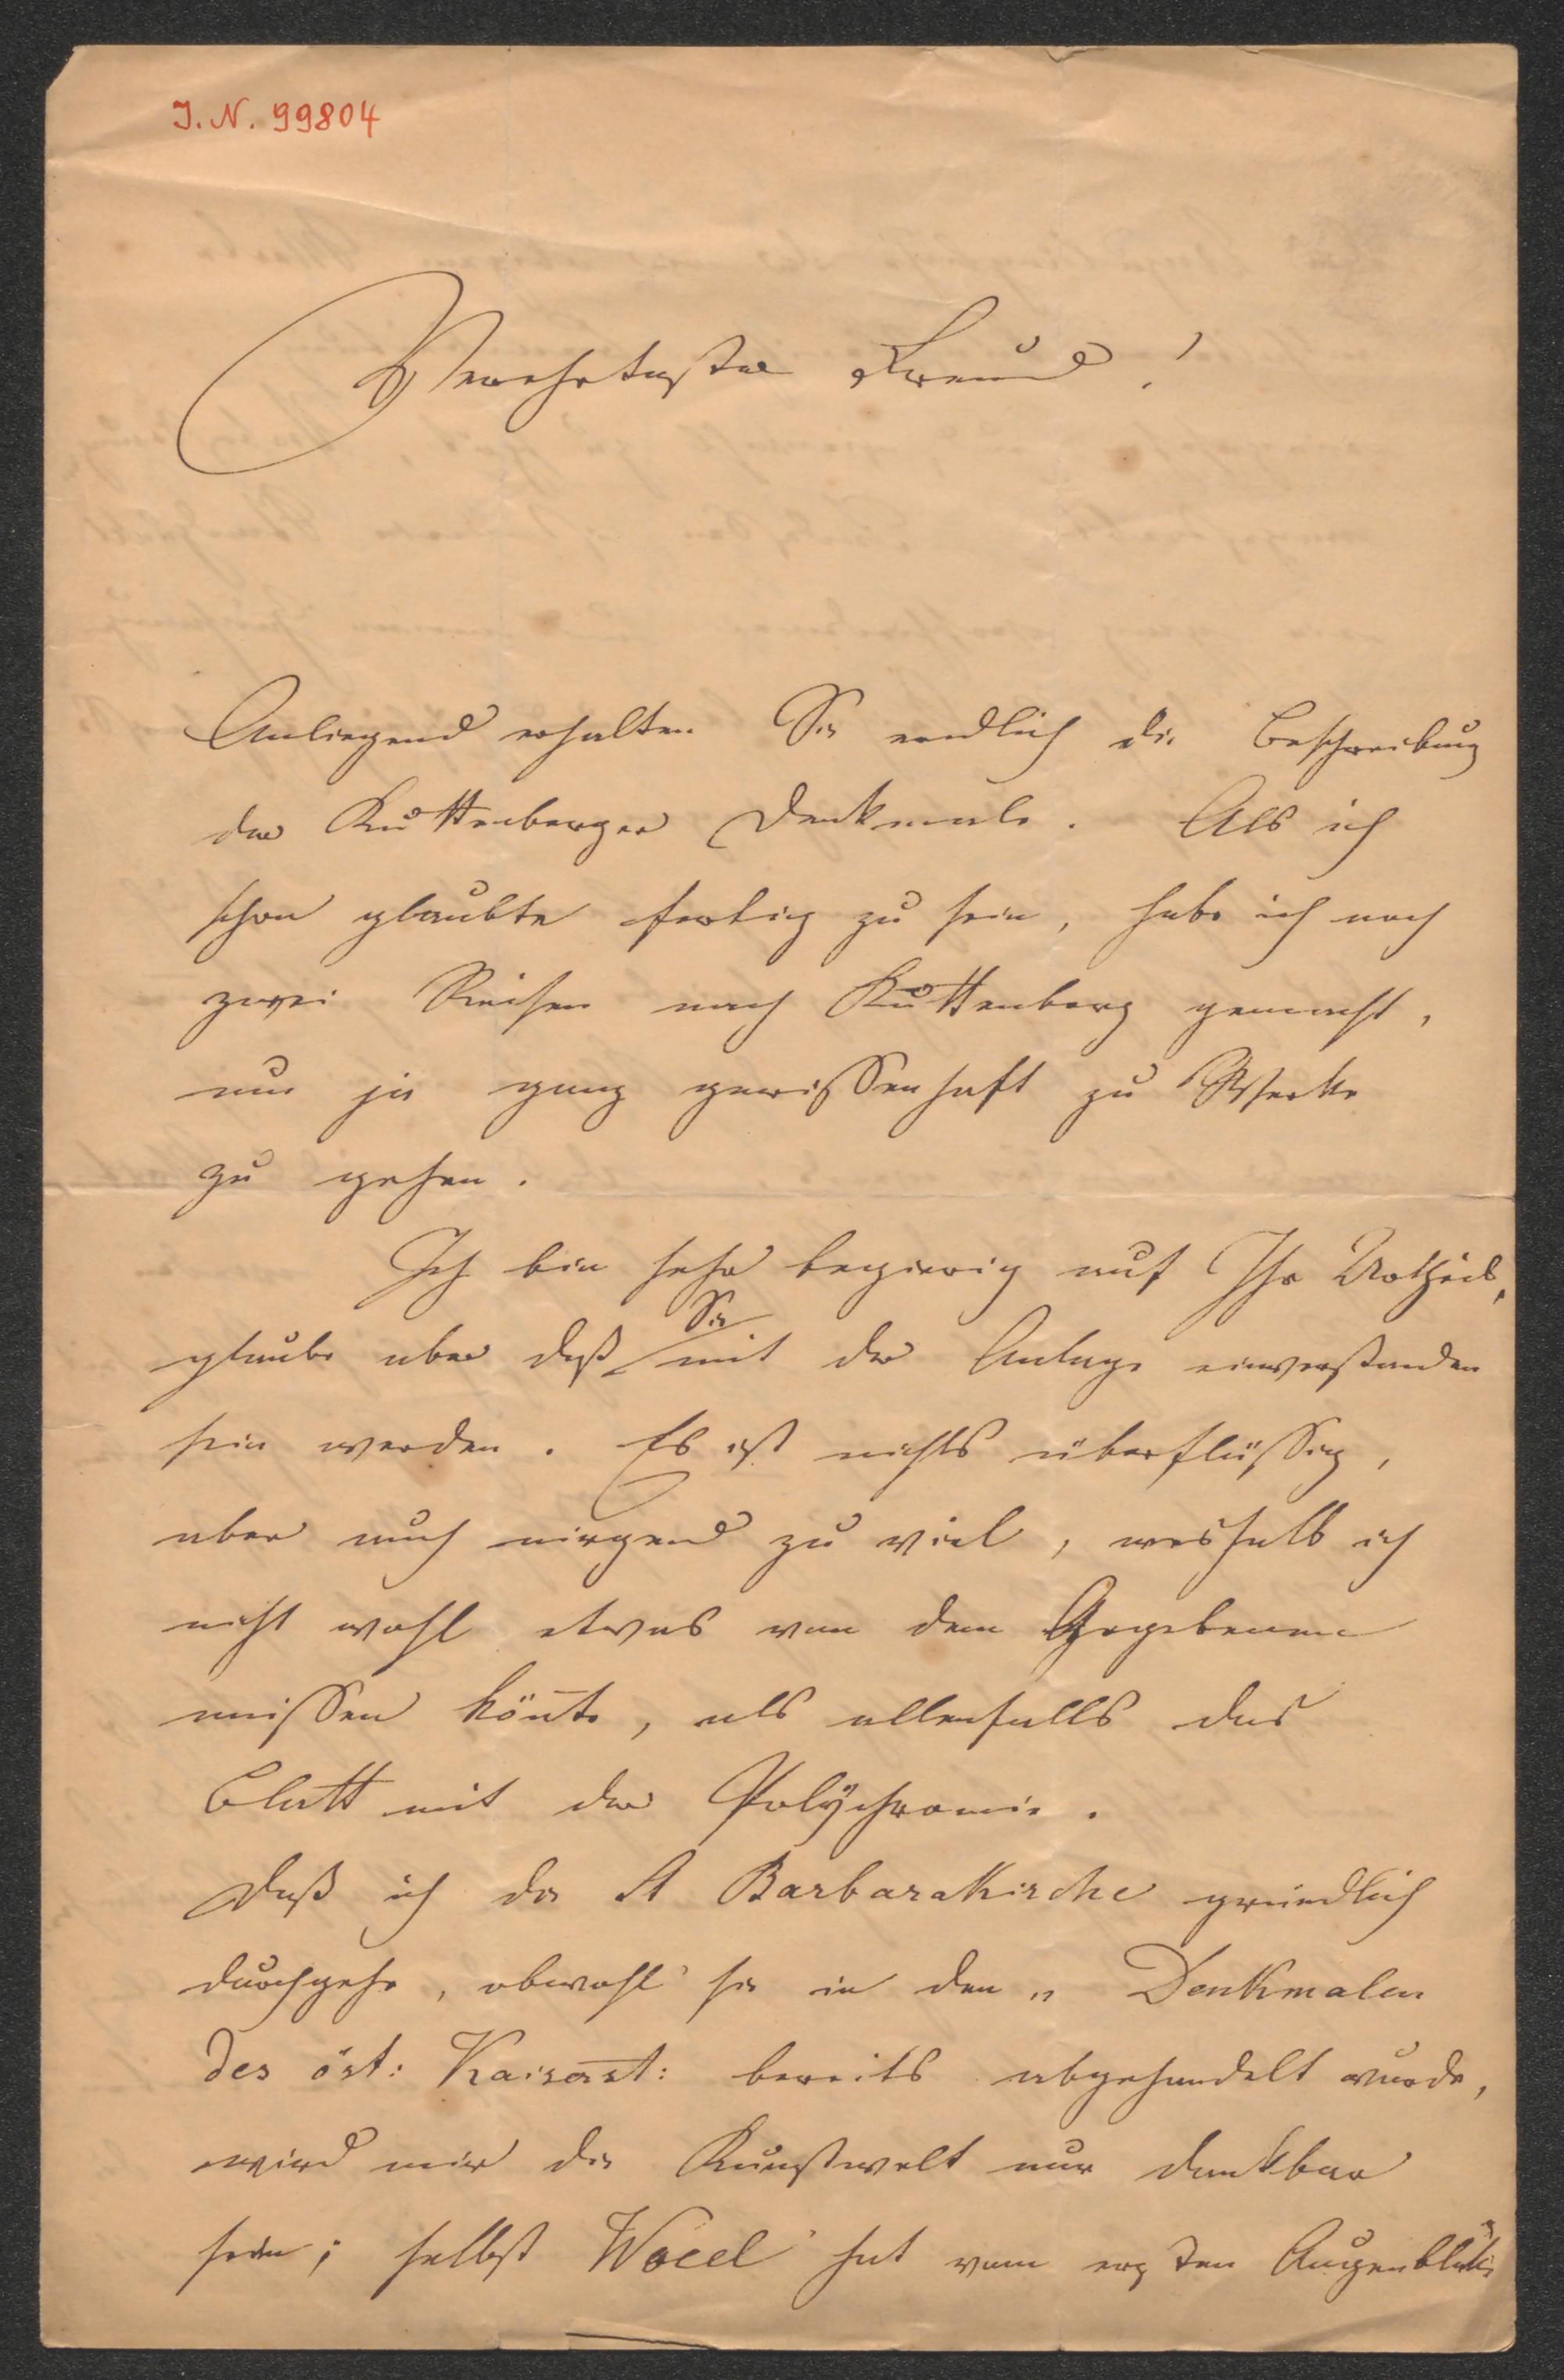 I. N. 99804
Verehrtester Freund!
Anliegend erhalten Sie endlich die Beschreibung
der Kuttenberger Denkmale. Als ich
schon glaubte fertig zu sein, habe ich noch
zwei Reisen nach Kuttenberg gemacht,
um ja ganz gewissenhaft zu Werke
zu gehen.
Ich bin sehr begierig auf Ihr Urtheil,
glaube aber daß Sie mit der Anlage einverstanden
sein werden. Es ist nichts überflüssig,
aber auch nirgend zu viel, weshalb ich
nicht wohl etwas von dem Gegebenen
missen könnte, als allenfalls das
Blatt mit der Polÿchromie.
Daß ich die St Barbarakirche gründlich
durchgehe, obwohl sie in den „Denkmalen
des öst: Kaiserst: bereits abgehandelt wurde,
wird mir die Kunstwelt nur dankbar
sein; selbst Wocel hat vom ersten Augenblick